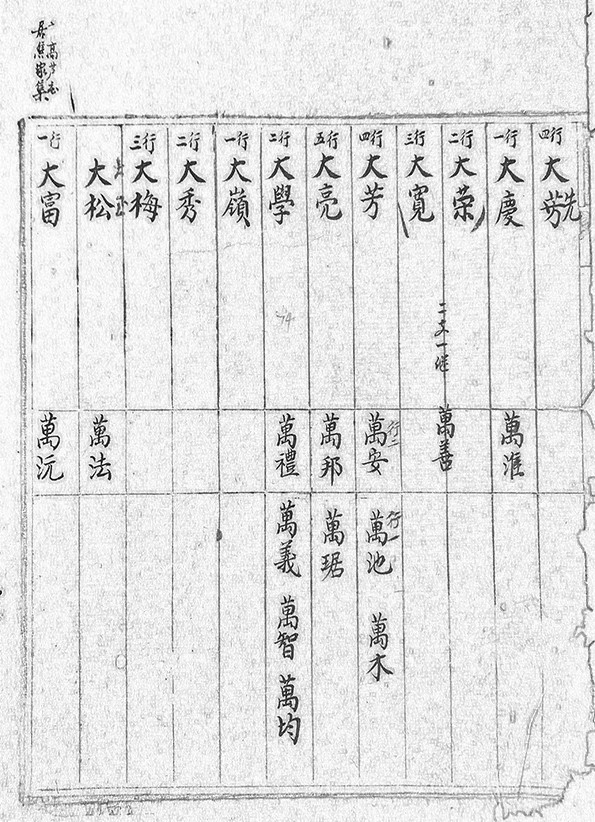 行四 大芳先
行一 大慶 萬淮
行二 大荣
二支一继 萬善
行三 大寬
行四 大芳 行二 萬安 行一 萬池 萬木
行五 大亮 萬邦 萬琚
行二 大學 萬禮 萬義 萬智 萬均
行一 大嶺
行二 大秀
行三 大梅
大松 萬法
行一 大富 萬沅
居焦家集